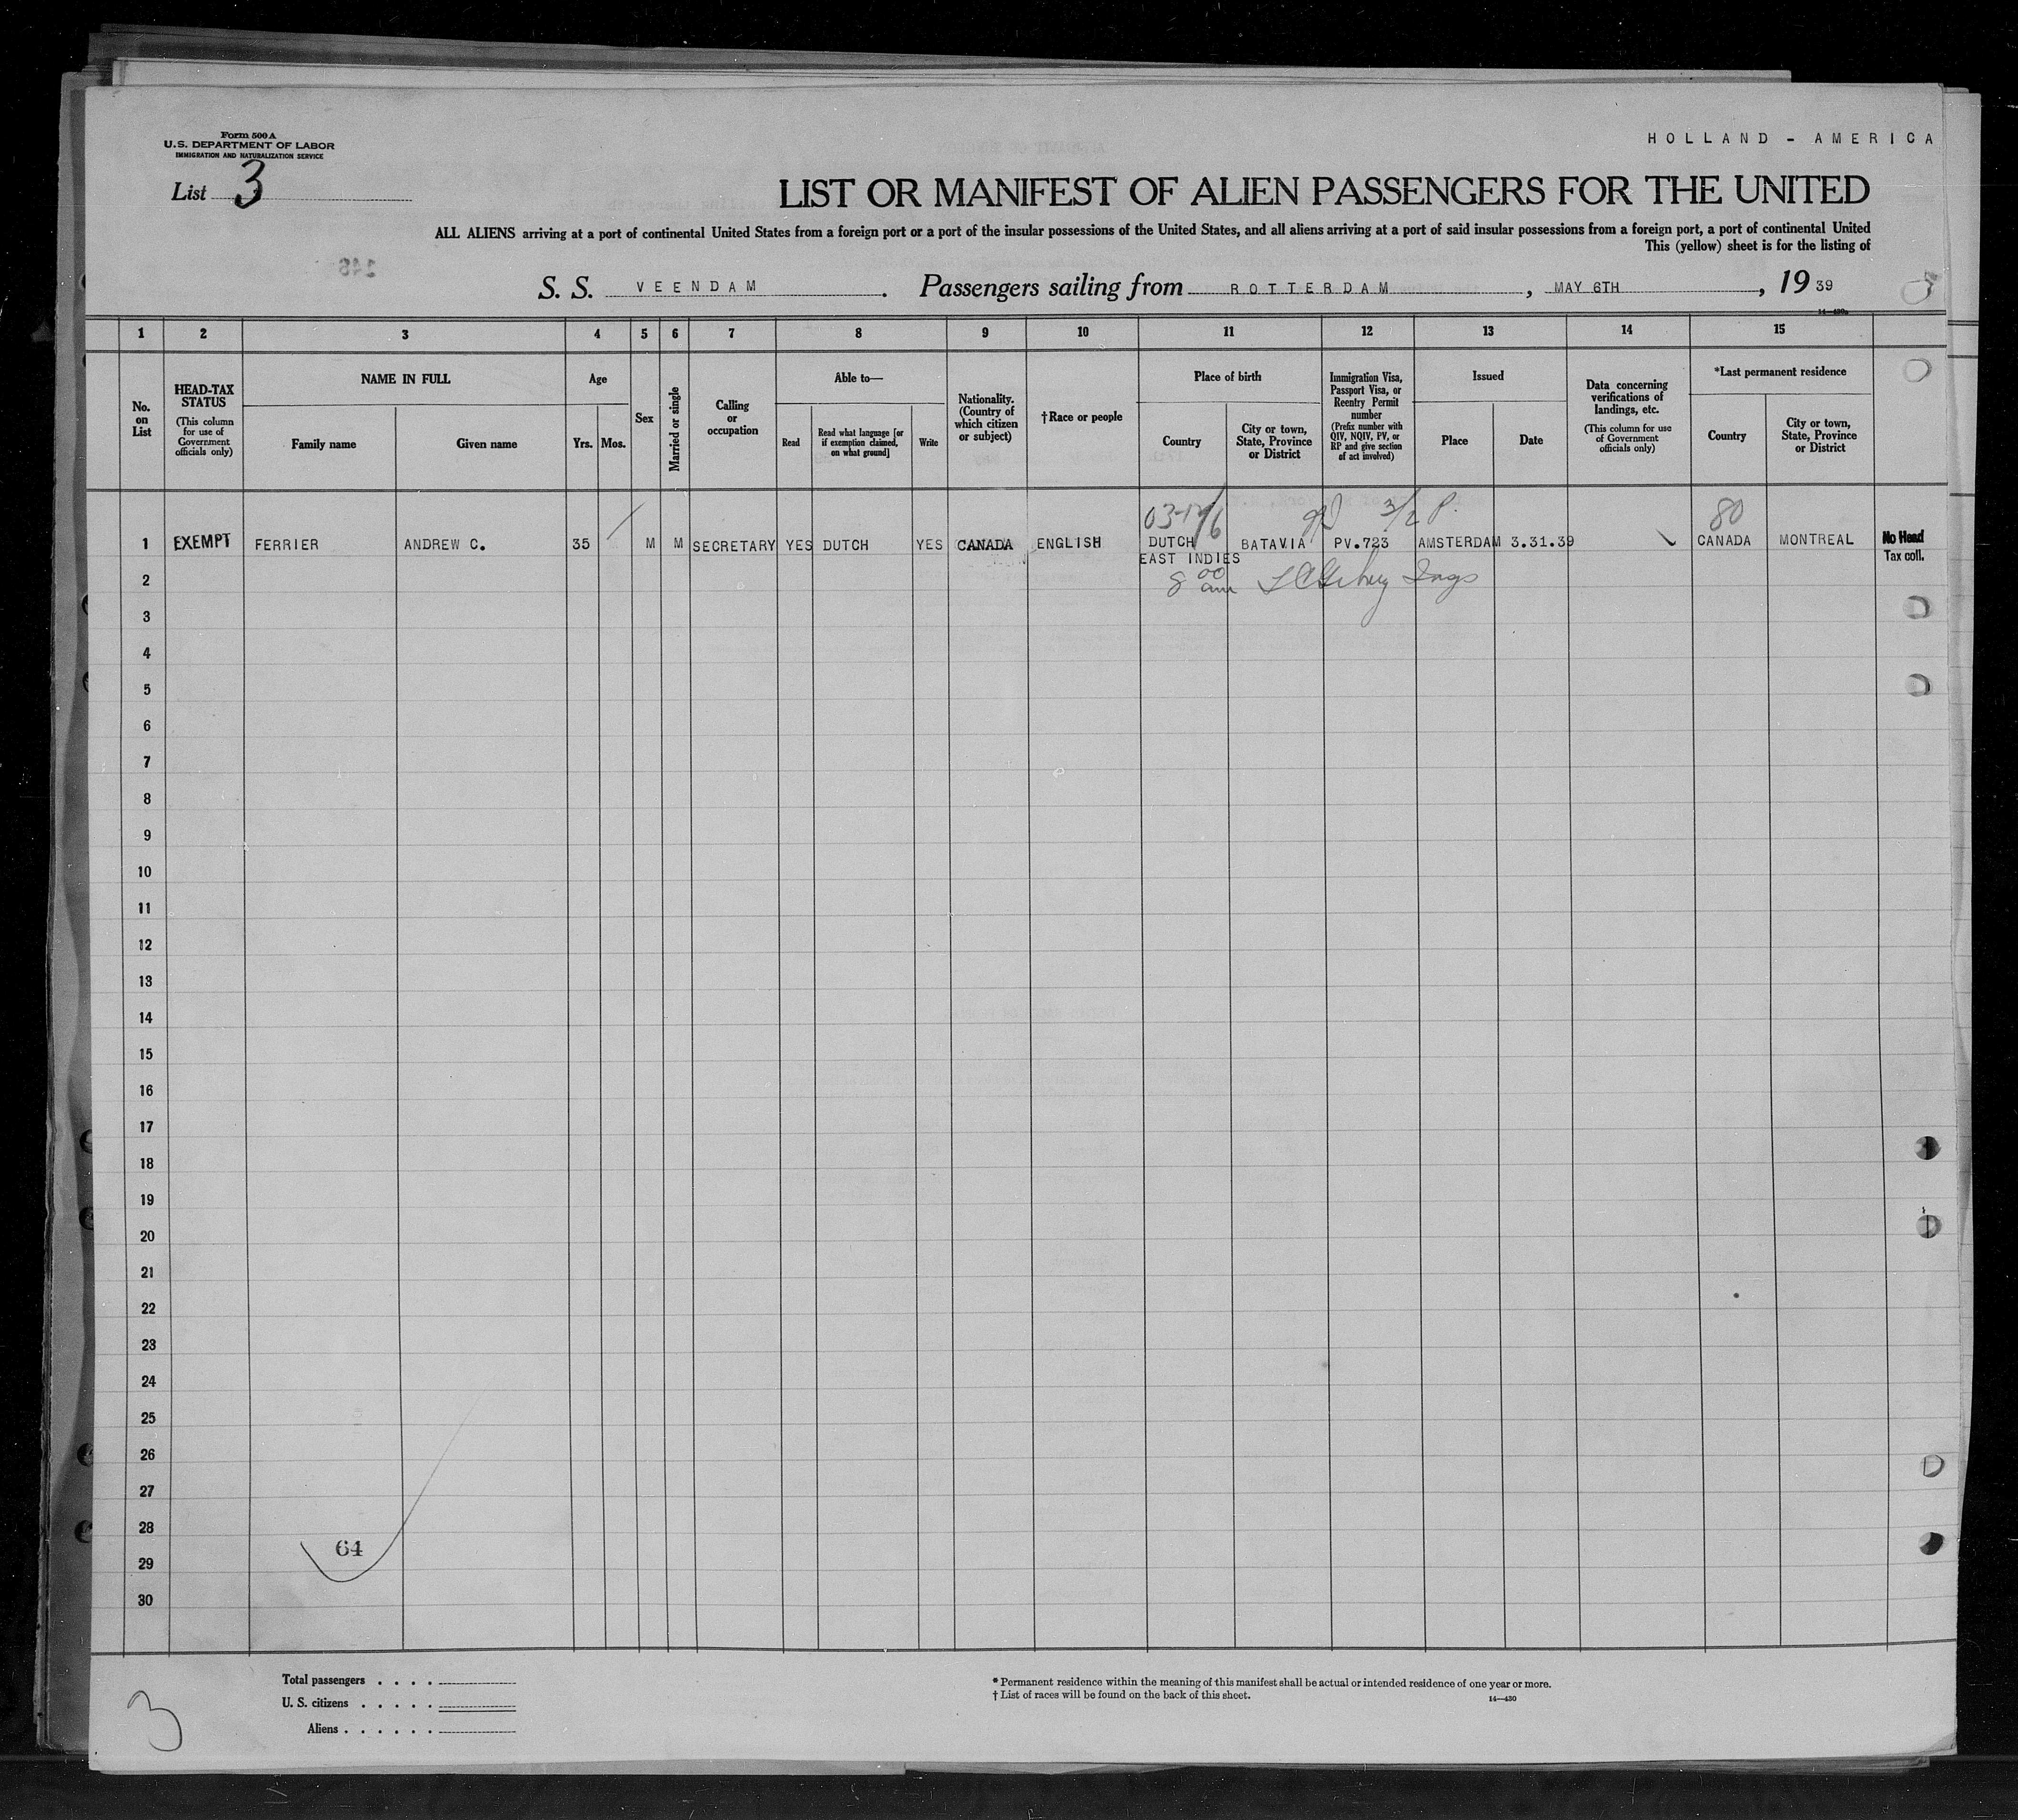 Form 500 A
U.S. DEPARTMENT OF LABOR
IMMIGRATION AND NATURALIZATION SERVICE
HOLLAND - AMERICA
List 3
LIST OR MANIFEST OF ALIEN PASSENGERS FOR THE UNITED
ALL ALIENS arriving at a port of continental United States from a foreign port or a port of the insular possessions of the United States, and all aliens arriving at a port of said insular possessions from a foreign port, a port of continental United
This (yellow) sheet is for the listing of
248
S. S. VEENDAM. Passengers sailing from ROTTERDAM, MAY 6TH, 1939
14—430a
1 2 3 4 5 6 7 8 9 10 11 12 13 14 15
No. on List
HEAD-TAX STATUS (This column for use of Government officials only)
NAME IN FULL
Family name Given name
Age
Yrs. Mos.
Sex
Married or single
Calling or occupation
Able to—
Read Read what language [or if exemption claimed, on what ground] Write
Nationality. (Country of which citizen or subject)
†Race or people
Place of birth
Country City or town, State, Province or District
Immigration Visa, Passport Visa, or Reentry Permit number (Prefix number with QIV, NQIV, PV, or RP and give section of act involved)
Issued
Place Date
Data concerning verifications of landings, etc. (This column for use of Government officials only)
*Last permanent residence
Country City or town, State, Province or District
3/2 P. 80
1 EXEMPT FERRIER ANDREW C. 35 M M SECRETARY YES DUTCH YES CANADA ENGLISH DUTCH EAST INDIES BATAVIA PV.723 AMSTERDAM 3.31.39 CANADA MONTREAL No Head Tax coll.
2 8 00 am
3
4
5
6
7
8
9
10
11
12
13
14
15
16
17
18
19
20
21
22
23
24
25
26
27
28
64
29
30
Total passengers . . . .
U. S. citizens . . . . .
Aliens . . . . . .
3
* Permanent residence within the meaning of this manifest shall be actual or intended residence of one year or more.
† List of races will be found on the back of this sheet.
14—430